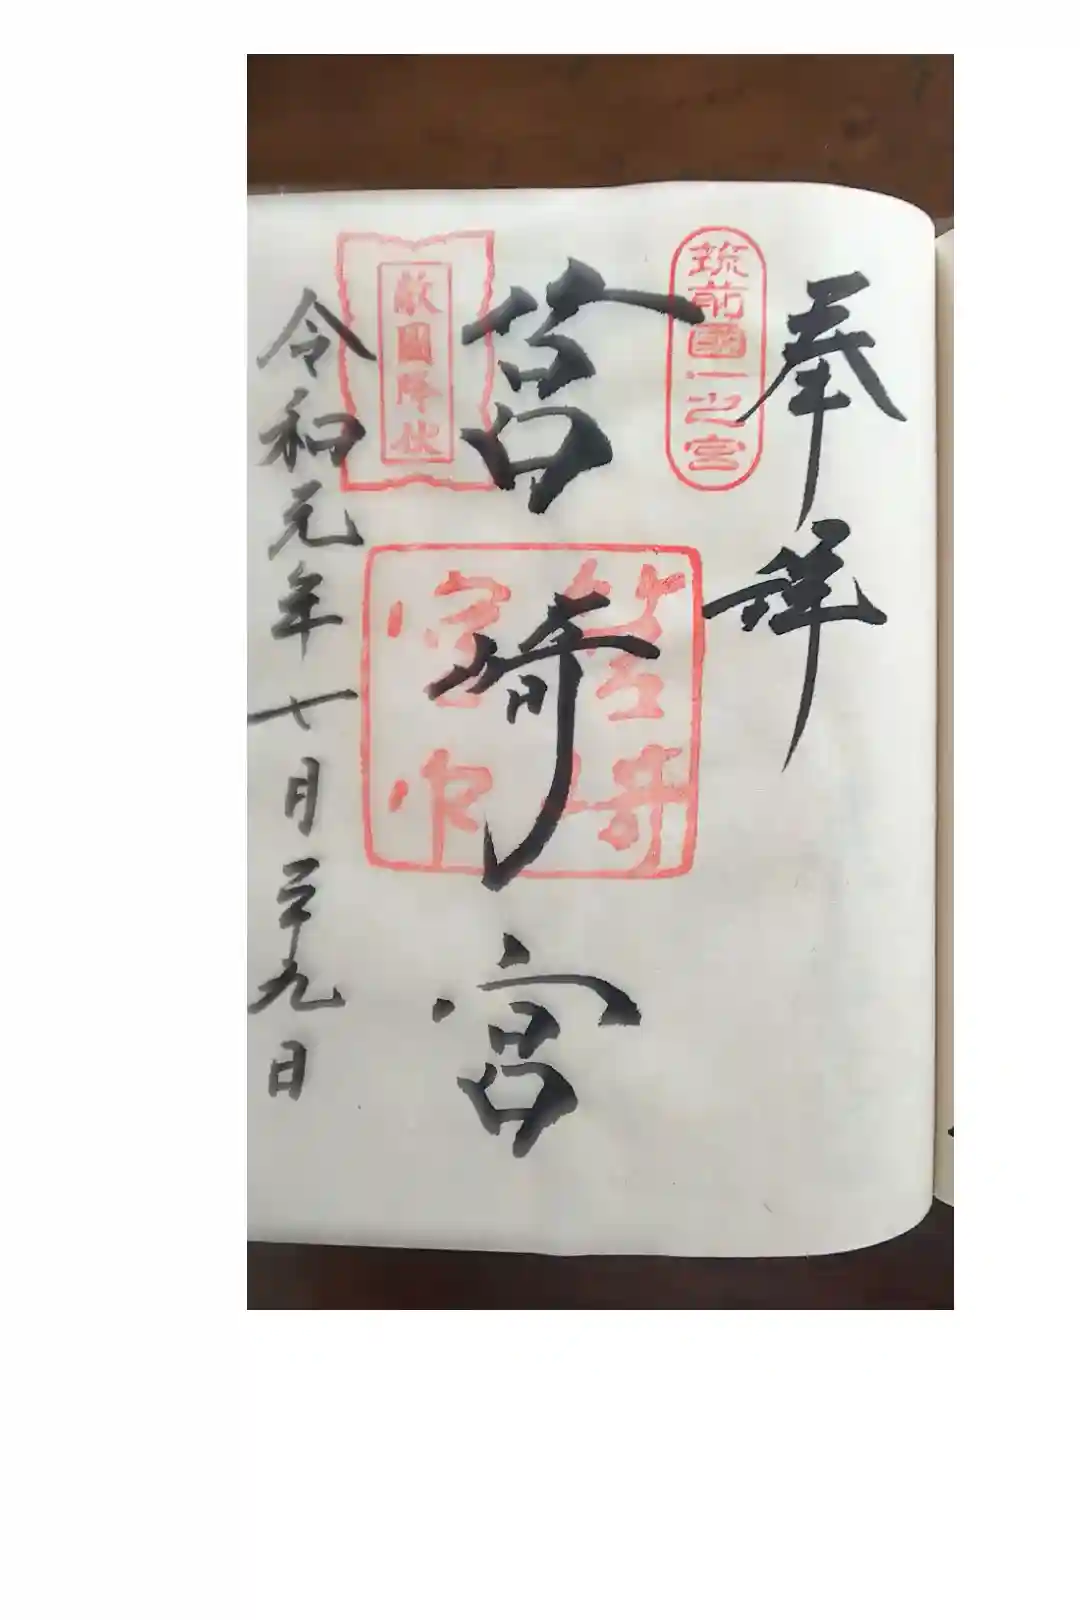 奉拝
筑前國一之宮
筥崎宮
敵國降伏
筥崎
宮印
令和元年七月二十九日